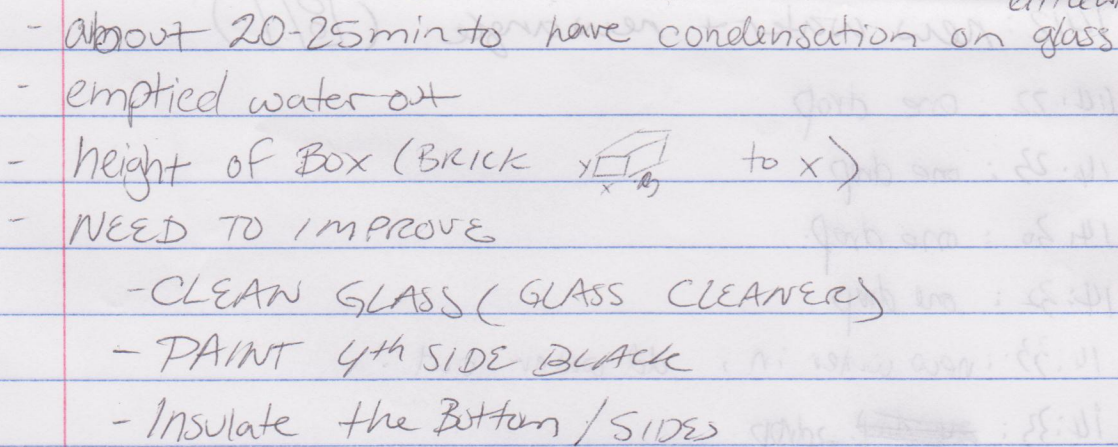 - about 20-25min to have condensation on glass
- emptied water out
- height of Box (BRICK y x to x)
- NEED TO IMPROVE
- CLEAN GLASS (GLASS CLEANER)
- PAINT 4th SIDE BLACK
- Insulate the Bottom / SIDES